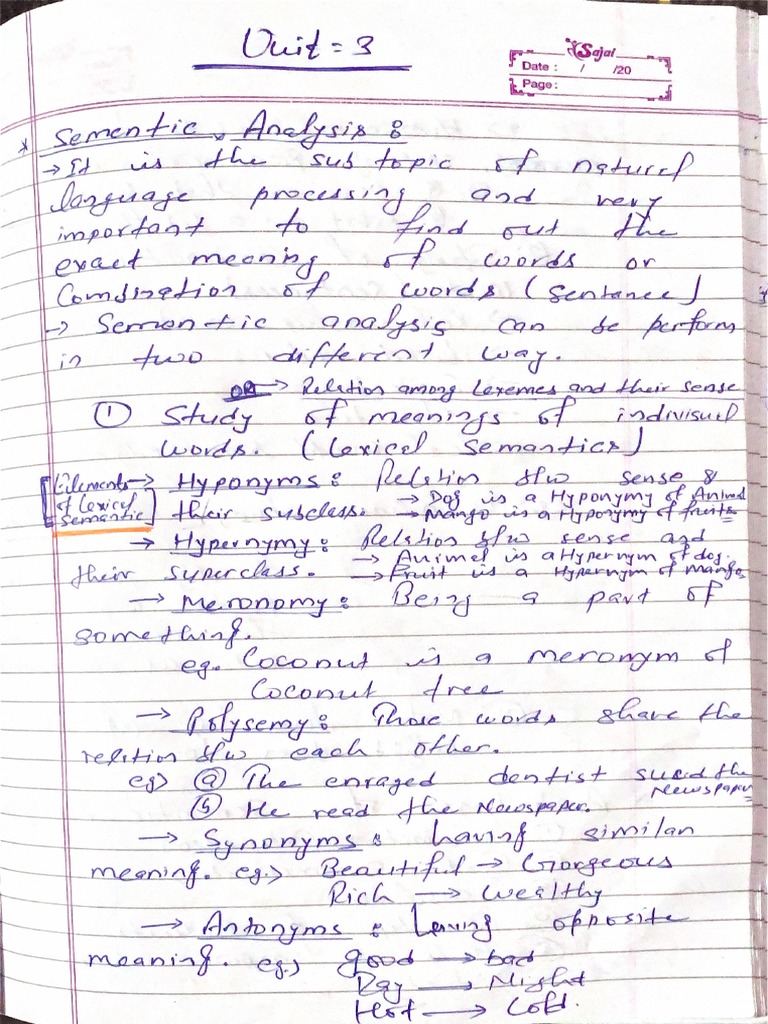 Unit = 3
Sajal
Date : / /20
Page :
* Sementic Analysis :
→ It is the sub topic of naturel
language processing and very
important to find out the
exact meaning of words or
Combination of words (sentance)
→ Sementic analysis can be perform
in two different way.
OR → Relation among Lexemes and their sense
① Study of meanings of indivisuel
words. (Lexical Semantics)
Elements of Lexical Semantic → Hyponyms : Reletion b/w sense &
their subclass. → Dog is a Hyponymy of Animal
→ Mango is a Hyponymy of fruits
→ Hypernymy : Reletion b/w sense and
their superclass. → Animel is a Hypernym of dog.
→ Fruit is a Hypernym of mango
→ Meronomy : Being a part of
something.
eg. Coconut is a meronym of
Coconut tree
→ Polysemy : Those words share the
reletion b/w each other.
eg> ⓐ The enraged dentist sued the Newspaper
ⓑ He read the Newspaper.
→ Synonyms : having similar
meaning. eg.> Beautiful → Gorgeous
Rich → Wealthy
→ Antonyms : having opposite
meaning. eg.> good → bad
Day → Night
Hot → Cold.